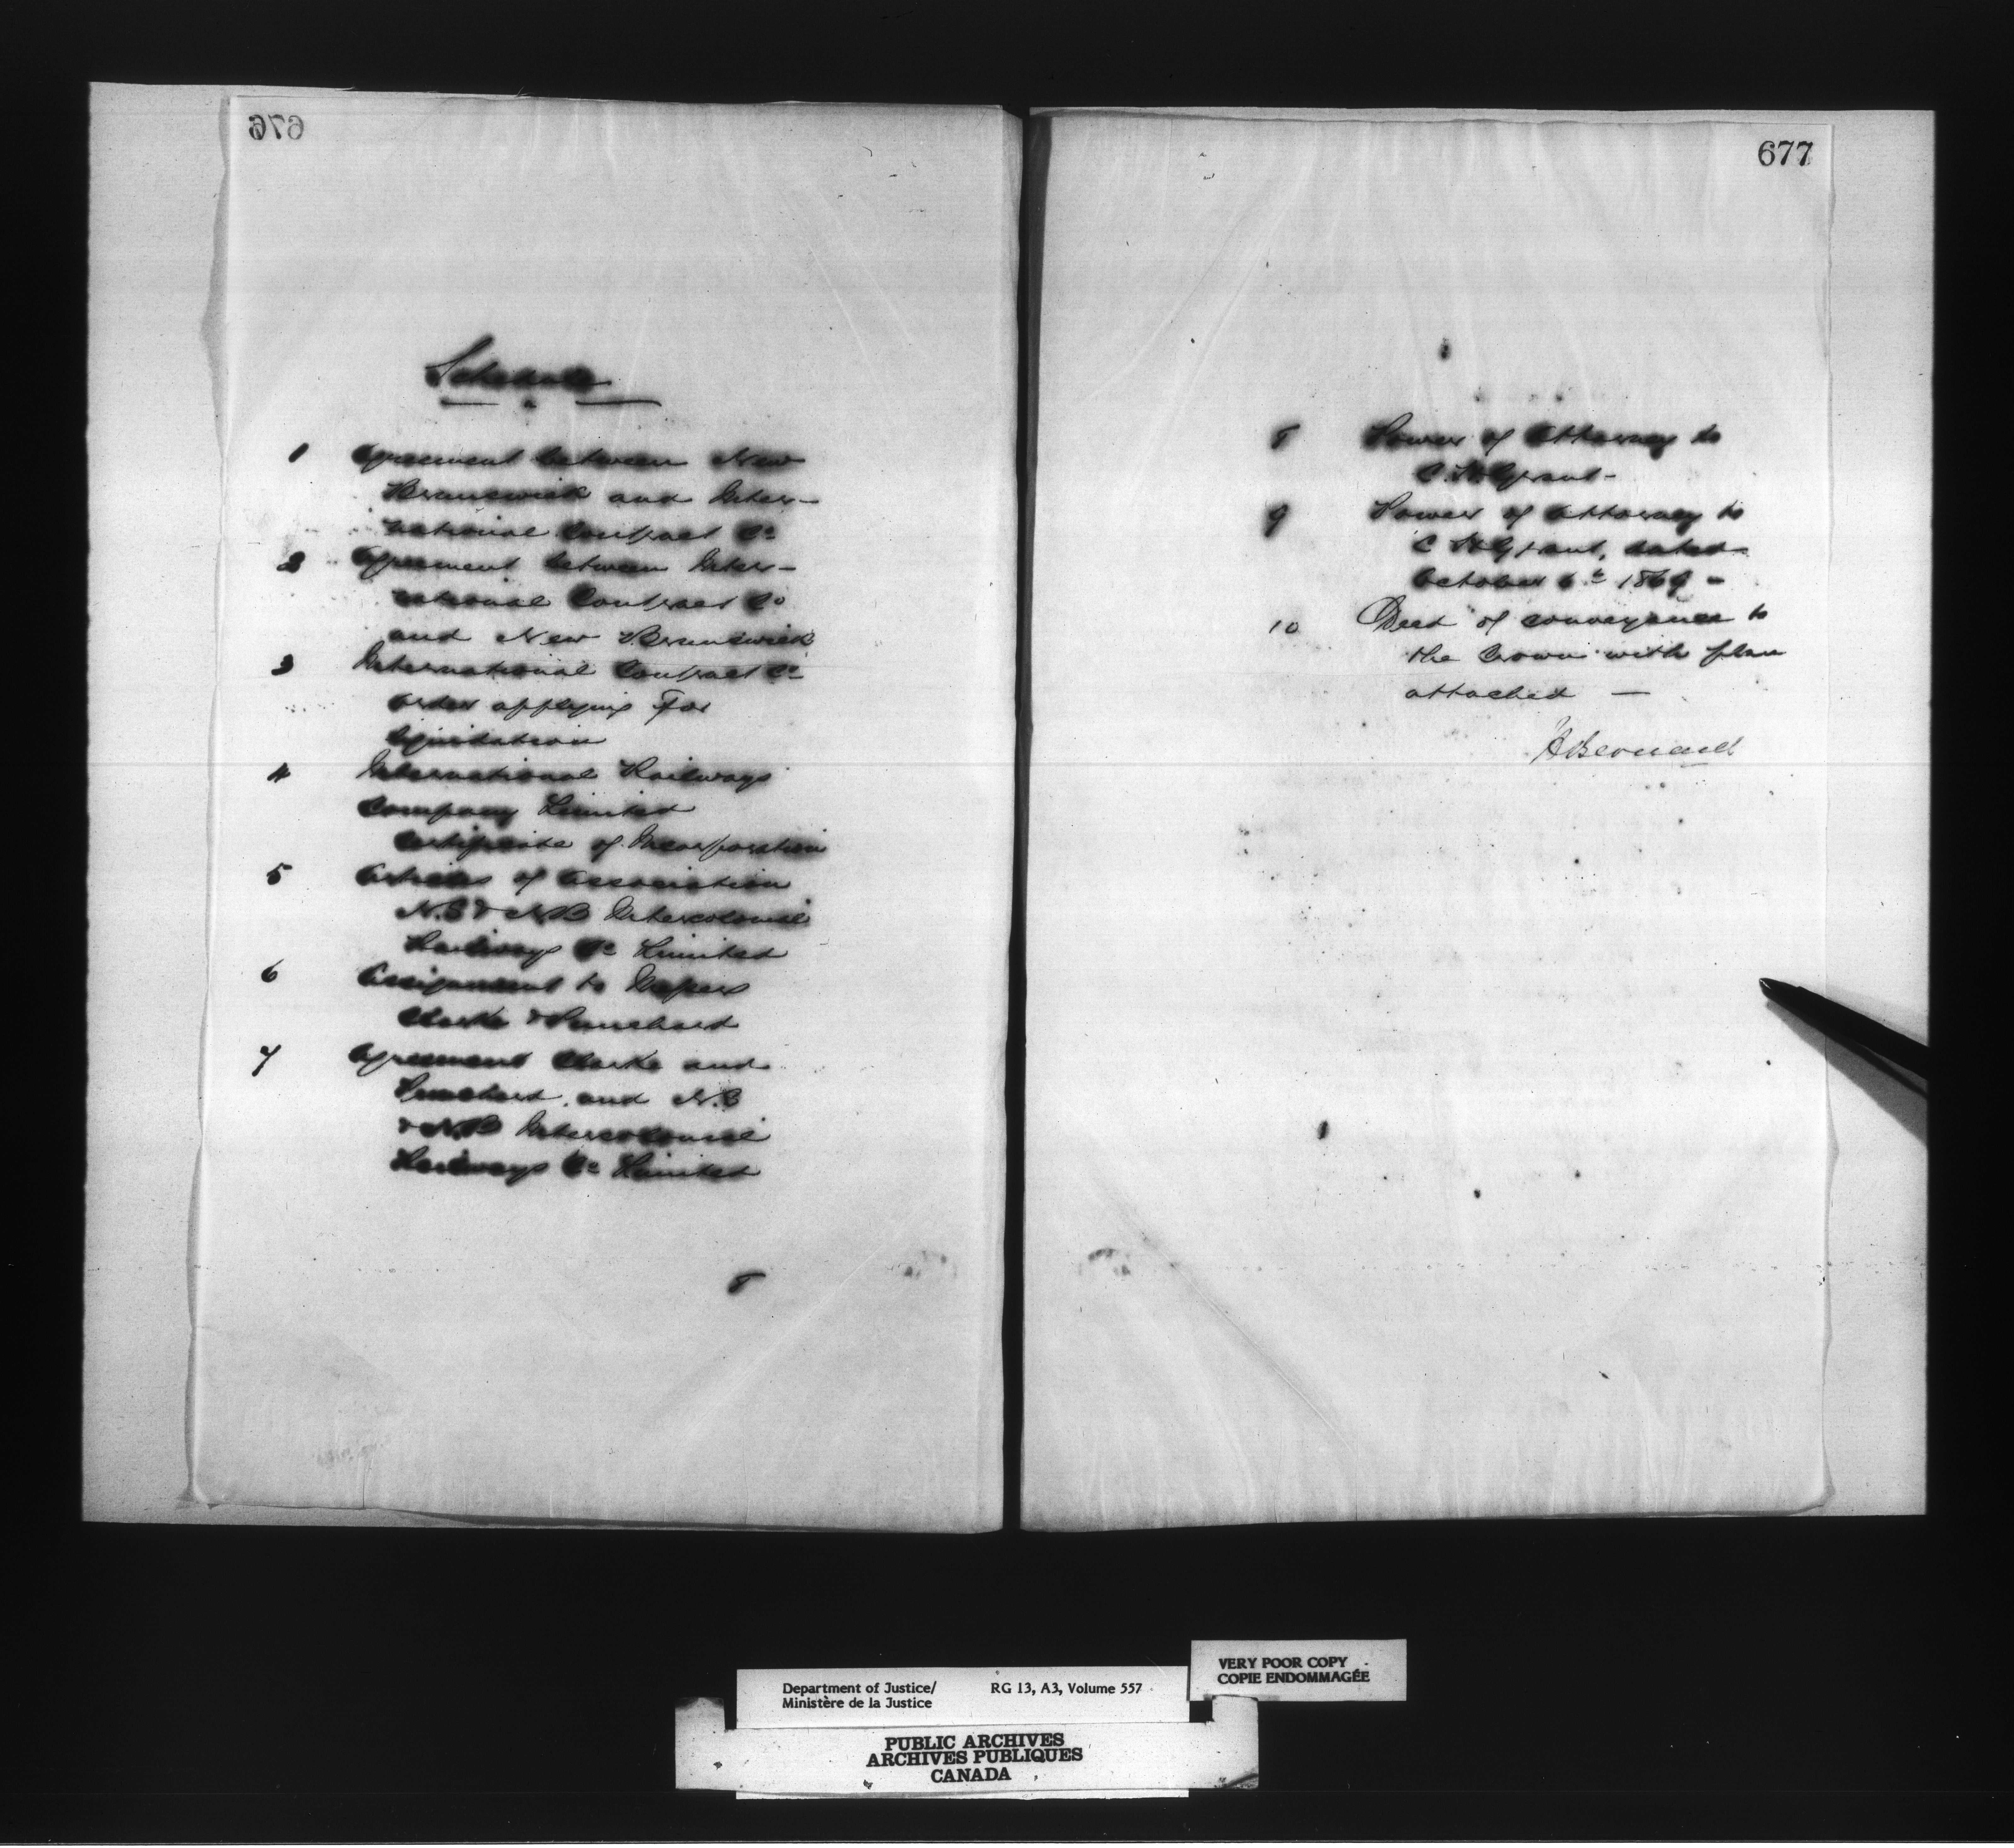 676
Schedule
1 Agreement between New
Brunswick and Inter-
national Contract Co
2 Agreement between Inter-
national Contract Co
and New Brunswick
3 International Contract Co
order applying for
liquidation
4 International Railways
Company Limited
Certificate of Incorporation
5 Articles of Association
N.S & N.B Intercolonial
Railway Co Limited
6 Assignment to Messrs
Clarke & Punchard
7 Agreement Clarke and
Punchard and N.S
& N.B Intercolonial
Railways Co Limited
8
677
8 Power of Attorney to
C. H. Grant-
9 Power of Attorney to
C H Grant, dated
October 6th 1869 -
10 Deed of conveyance to
the Crown with plan
attached —
H Bernard
VERY POOR COPY
COPIE ENDOMMAGÉE
Department of Justice/ RG 13, A3, Volume 557
Ministère de la Justice
PUBLIC ARCHIVES
ARCHIVES PUBLIQUES
CANADA